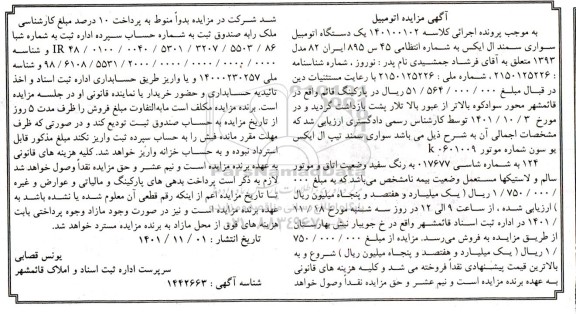 آگهی مزایده اتومبیل
به موجب پرونده اجرائی کلاسه ۱۴۰۱۰۰۱۰۲ یک دستگاه اتومبیل
سواری سمند ال ایکس به شماره انتظامی ۴۵ س ۸۹۵ ایران ۸۲ مدل
۱۳۹۳ متعلق به آقای فرشاد جمشیدی نام پدر : نوروز , شماره شناسنامه
: ۲۱۵۰۱۲۵۲۲۶ , شماره ملی : ۲۱۵۰۱۲۵۲۲۶ با رعایت مستثنیات دین
در قبال مبلغ ۰۰۰ / ۵۶۴ / ۵۱ ریال در پارکینگ قائم واقع در
قائمشهر محور سوادکوه بالاتر از عبور بالا تلار پشت بازداشت گردید و در
مورخ ۳ / ۱۰ / ۱۴۰۱ توسط کارشناس رسمی دادگستری ارزیابی شد که
مشخصات اجمالی آن به شرح ذیل می باشد سواری سمند تیپ ال ایکس
یو سون شماره موتور k ۰۶۰۱۰۰۹
۱۲۴ به شماره شاسی ۰۱۷۶۷۷ به رنگ سفید وضعیت اتاق و موتور
سالم و لاستیکها مستعمل وضعیت بیمه نامشخص می‌باشد که به مبلغ ۰۰۰
/ ۷۵۰/۰۰۰ / ۱ ریال ( یک میلیارد و هفتصد و پنجاه میلیون ریال
) ارزیابی شده , از ساعت ۹ الی ۱۲ در روز سه شنبه مورخ
۱۴۰۱ در اداره ثبت اسناد قائمشهر واقع در خ جویبار نبش بهارستان
از طریق مزایده به فروش می‌رسد. مزایده از مبلغ ۰۰۰ / ۷۵۰/۰۰۰
/ ۱ ریال ( یک میلیارد و هفتصد و پنجاه میلیون ریال ) شروع و به
بالاترین قیمت پیشنهادی نقداً فروخته می شد و کلیه هزینه های قانونی
به عهده برنده مزایده است و نیم عشر و حق مزایده نقداً وصول خواهد
شد شرکت در مزایده بدواً منوط به پرداخت ۱۰ درصد مبلغ کارشناسی
ملک رابه صندوق ثبت به شماره حساب سپرده اداره ثبت به شماره شبا
۸۶ / ۵۵۰۳ / ۳۲۰۷ / ۵۳۰۱ / ۰۰۴۰ / ۰۱۰۰ / IR ۴۸ و شناسه
۰۰۰۰ / ۰۰۰۰ / ۰۰۰۰ / ۲۰۰۰ / ۵۵۳۱ / ۶۱۰۸ / ۹۸ و شناسه
ملی ۱۴۰۰۰۲۳۰۲۵۷ و یا واریز طریق حسابداری اداره ثبت اسناد و اخذ
تائیدیه حسابداری و حضور خریدار یا نماینده قانونی او در جلسه مزایده
است. برنده مزایده مکلف است مابه‌التفاوت مبلغ فروش را ظرف مدت ۵ روز
از تاریخ مزایده به حساب صندوق ثبت تودیع کند و در صورتی که ظرف
مهلت مقرر مانده فیش را به حساب سپرده ثبت واریز نکند مبلغ مذکور قابل
استرداد نبوده و به حساب خزانه واریز خواهد شد. کلیه هزینه های قانونی
به عهده برنده مزایده است و نیم عشر و حق مزایده نقداً وصول خواهد شد
لازم به ذکر است پرداخت بدهی های پارکینگ و مالیاتی و عوارض و غیره
تا تاریخ مزایده اعم از اینکه رقم قطعی آن معلوم شده یا نشده باشد به
عهده برنده مزایده است و نیز در صورت وجود مازاد وجوه پرداختی بابت
هزینه های فوق از محل مازاد به برنده مزایده مسترد خواهد شد.
تاریخ انتشار : ۰۱ / ۱۱ / ۱۴۰۱
یونس قصابی
سرپرست اداره ثبت اسناد و املاک قائمشهر
شناسه آگهی : ۱۴۴۲۶۶۳